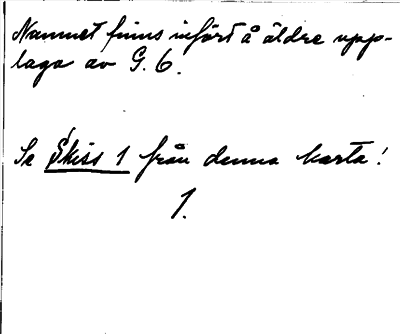 Namnet finns infört å äldre upp-
laga av G. 6.
Se Skiss 1 från denna karta!
1.